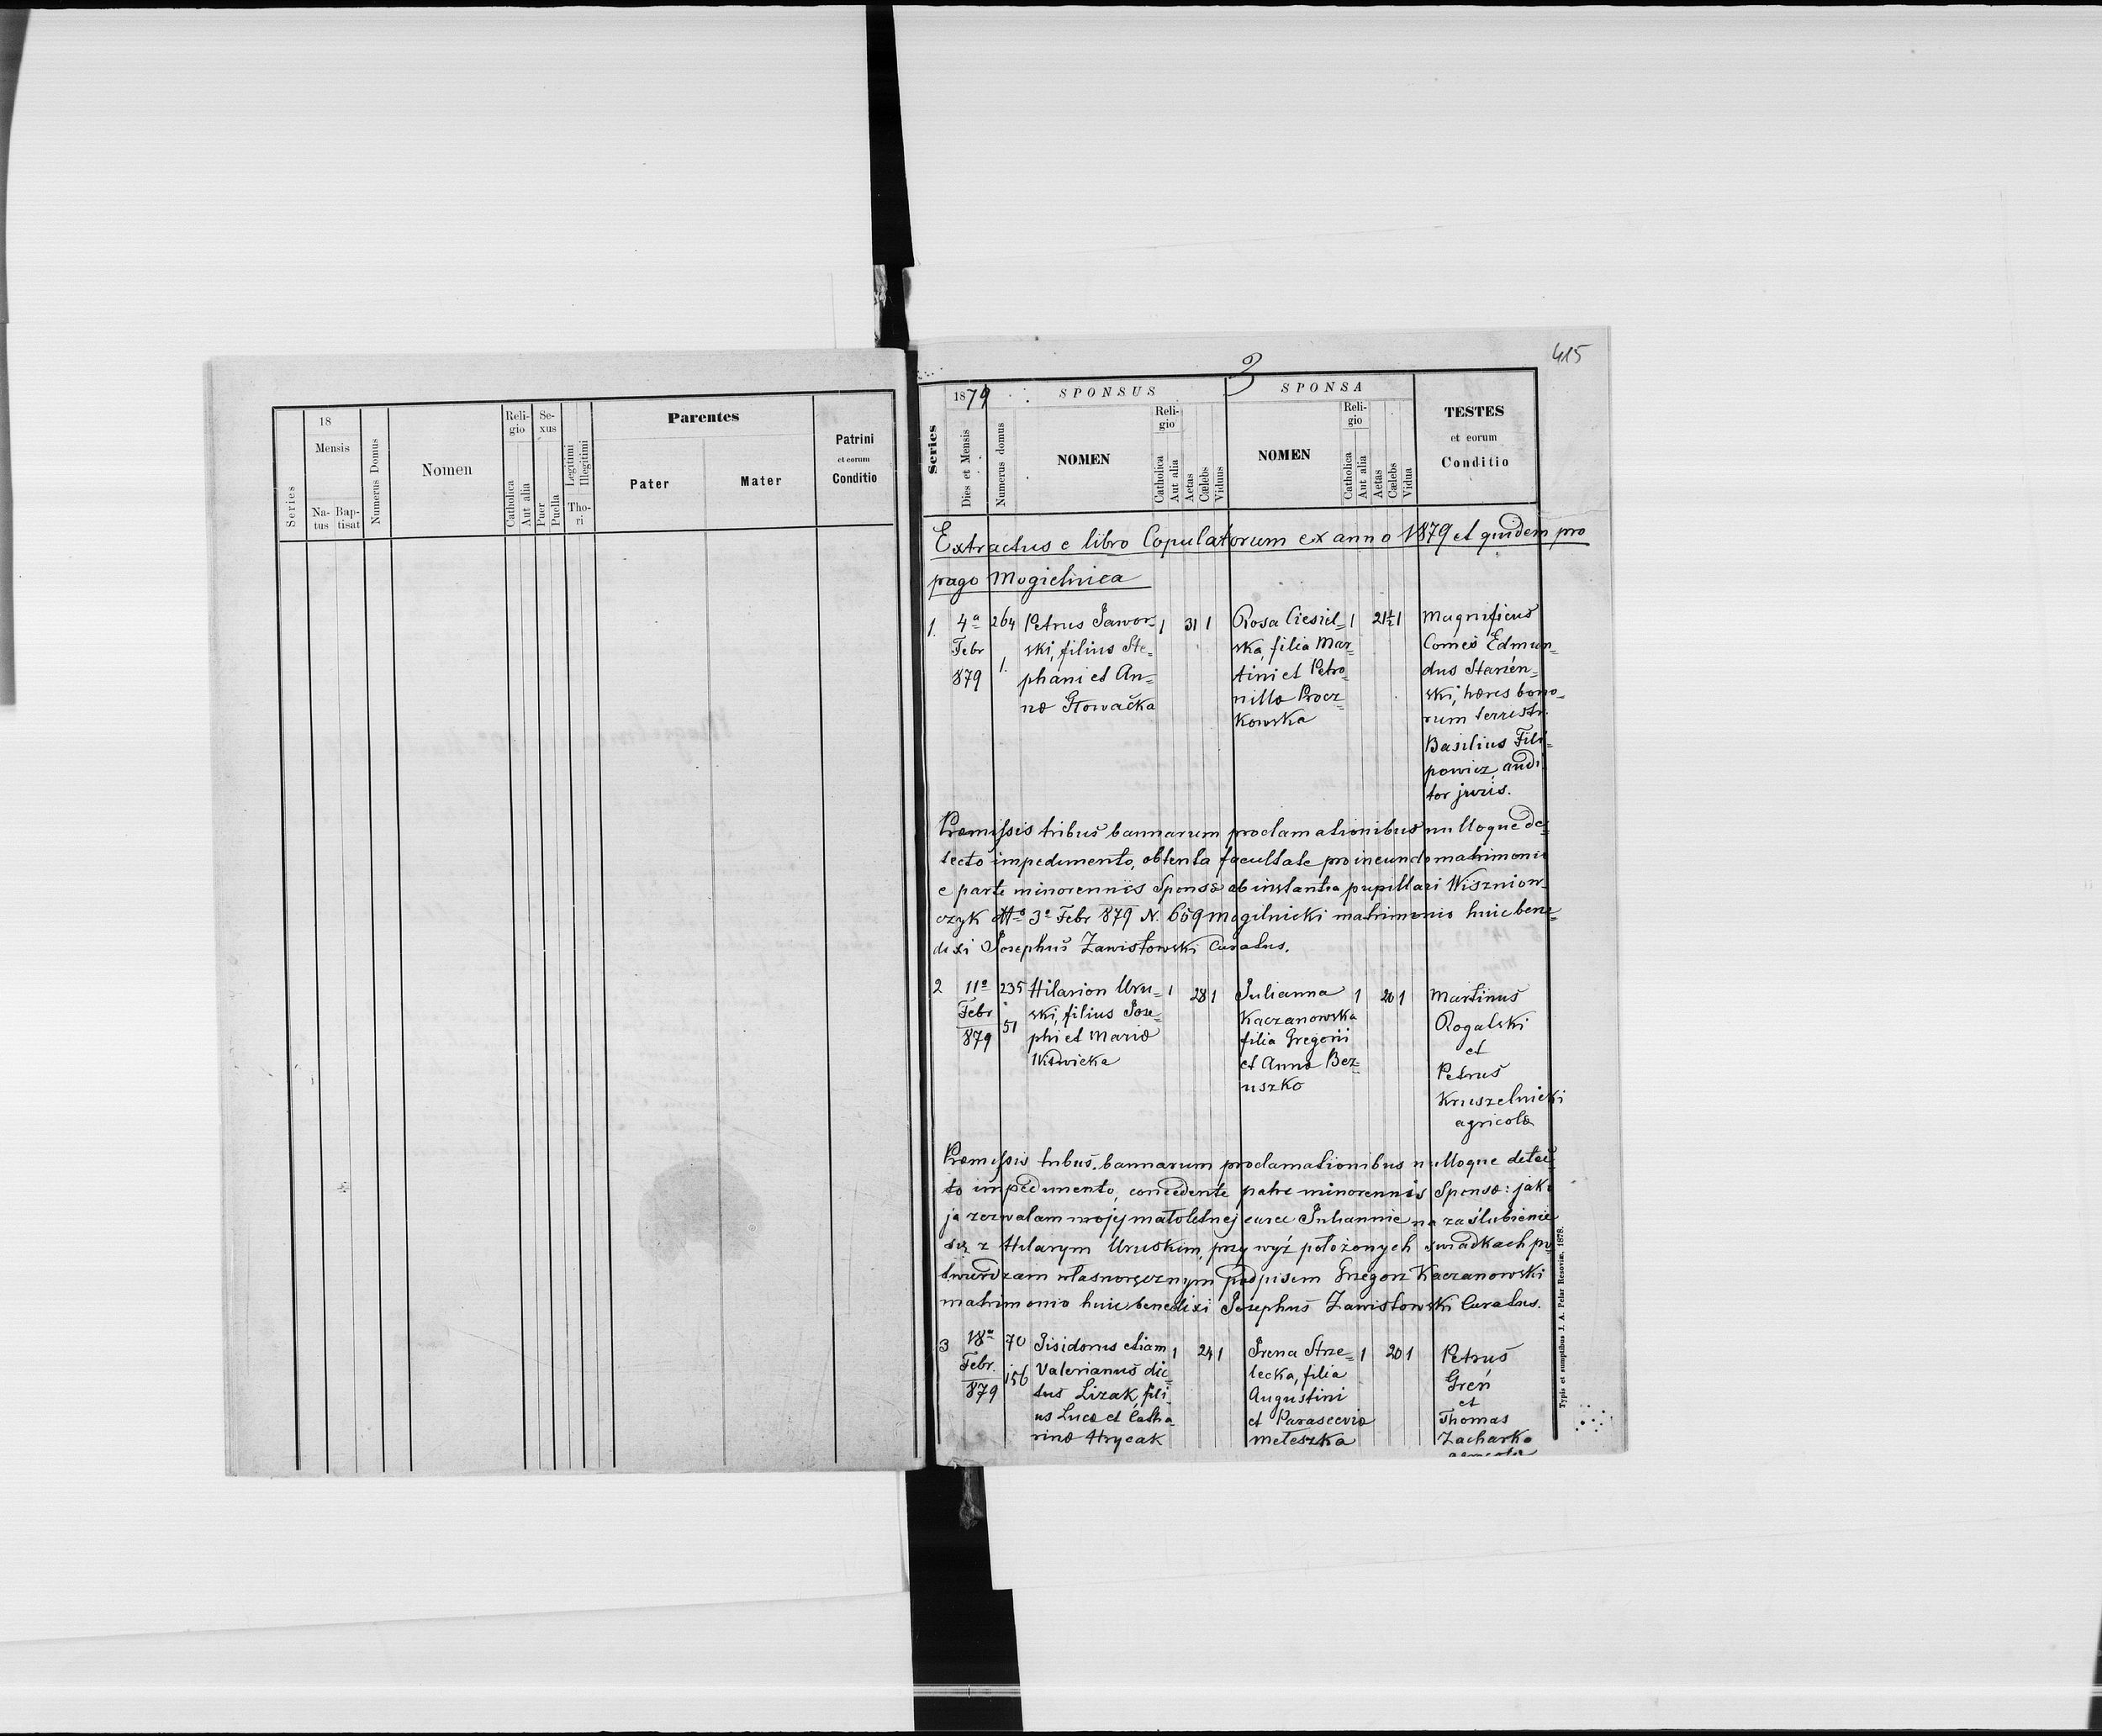 18
Mensis
Series
Na-
tus
Bap-
tisat
Numerus Domus
Nomen
Reli-
gio
Catholica
Aut alia
Se-
xus
Puer
Puella
Legitimi
Illegitimi
Tho-
ri
Parentes
Pater
Mater
Patrini
et eorum
Conditio
415
3
1879
SPONSUS
SPONSA
Series
Dies et Mensis
Numerus domus
NOMEN
Reli-
gio
Catholica
Aut alia
Aetas
Cælebs
Viduus
NOMEN
Reli-
gio
Catholica
Aut alia
Aetas
Cælebs
Vidua
TESTES
et eorum
Conditio
Extractus e libro Copulatorum ex anno 1879 et quidem pro
pago Mogielnica
1. 4a Febr 879
264
1.
Petrus Jawor=
ski, filius Ste=
phani et An=
næ Głowačka
1 31 1
Rosa Ciesiel=
ska, filia Mar=
tini et Petro=
nillæ Procz=
kowska
1 21½ 1
Magnificus
Comes Edmun=
dus Starzén=
ski, hæres bono=
rum terrestr.
Basilius Fili=
powicz, audi
tor juris.
Præmissis tribus bannarum proclamationibus nulloque de=
tecto impedimento, obtenta facultate pro ineundo matrimonio
e parte minorennis Sponsæ ab instantia pupillari Wiszniow=
czyk dto 3a Febr 879 N. 669 mogilnicki matrimonio huic bene=
dixi Josephus Zawisłowski Curatus.
2 11a Febr 879
235
51
Hilarion Uru=
ski, filius Jose=
phi et Mariæ
Witwicka
1 28 1
Julianna
Kaczanowska
filia Gregorii
et Annæ Bez=
uszko
1 20 1
Martinus
Rogalski
et
Petrus
Kruszelnicki
agricolæ
Præmissis tribus bannarum proclamationibus nulloque detec=
to impedimento, concedente patre minorennis Sponsæ: jako
ja zezwalam mojej małoletnej curce Juliannie na zaślubienie
się z Hilarym Uruskim, przy wyż położonych świadkach po=
twierdzam własnoręcznym podpisem Grzegorz Kaczanowski
matrimonio huic benedixi Josephus Zawisłowski Curatus.
3 18a Febr. 879
70
156
Jisidorus etiam
Valerianus dic=
tus Lizak, fili=
us Lucæ et Catha=
rinæ Hrycak
1 24 1
Irena Strze=
lecka, filia
Augustini
et Parasceviæ
Meteszka
1 20 1
Petrus
Greń
et
Thomas
Zacharko
agricolæ
Typis et sumptibus J. A. Pelar Resoviæ. 1878.